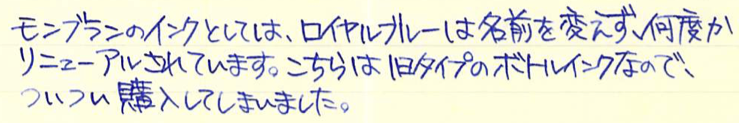 モンブランのインクとしては、ロイヤルブルーは名前を変えず、何度か
リニューアルされています。こちらは旧タイプのボトルインクなので、
ついつい購入してしまいました。